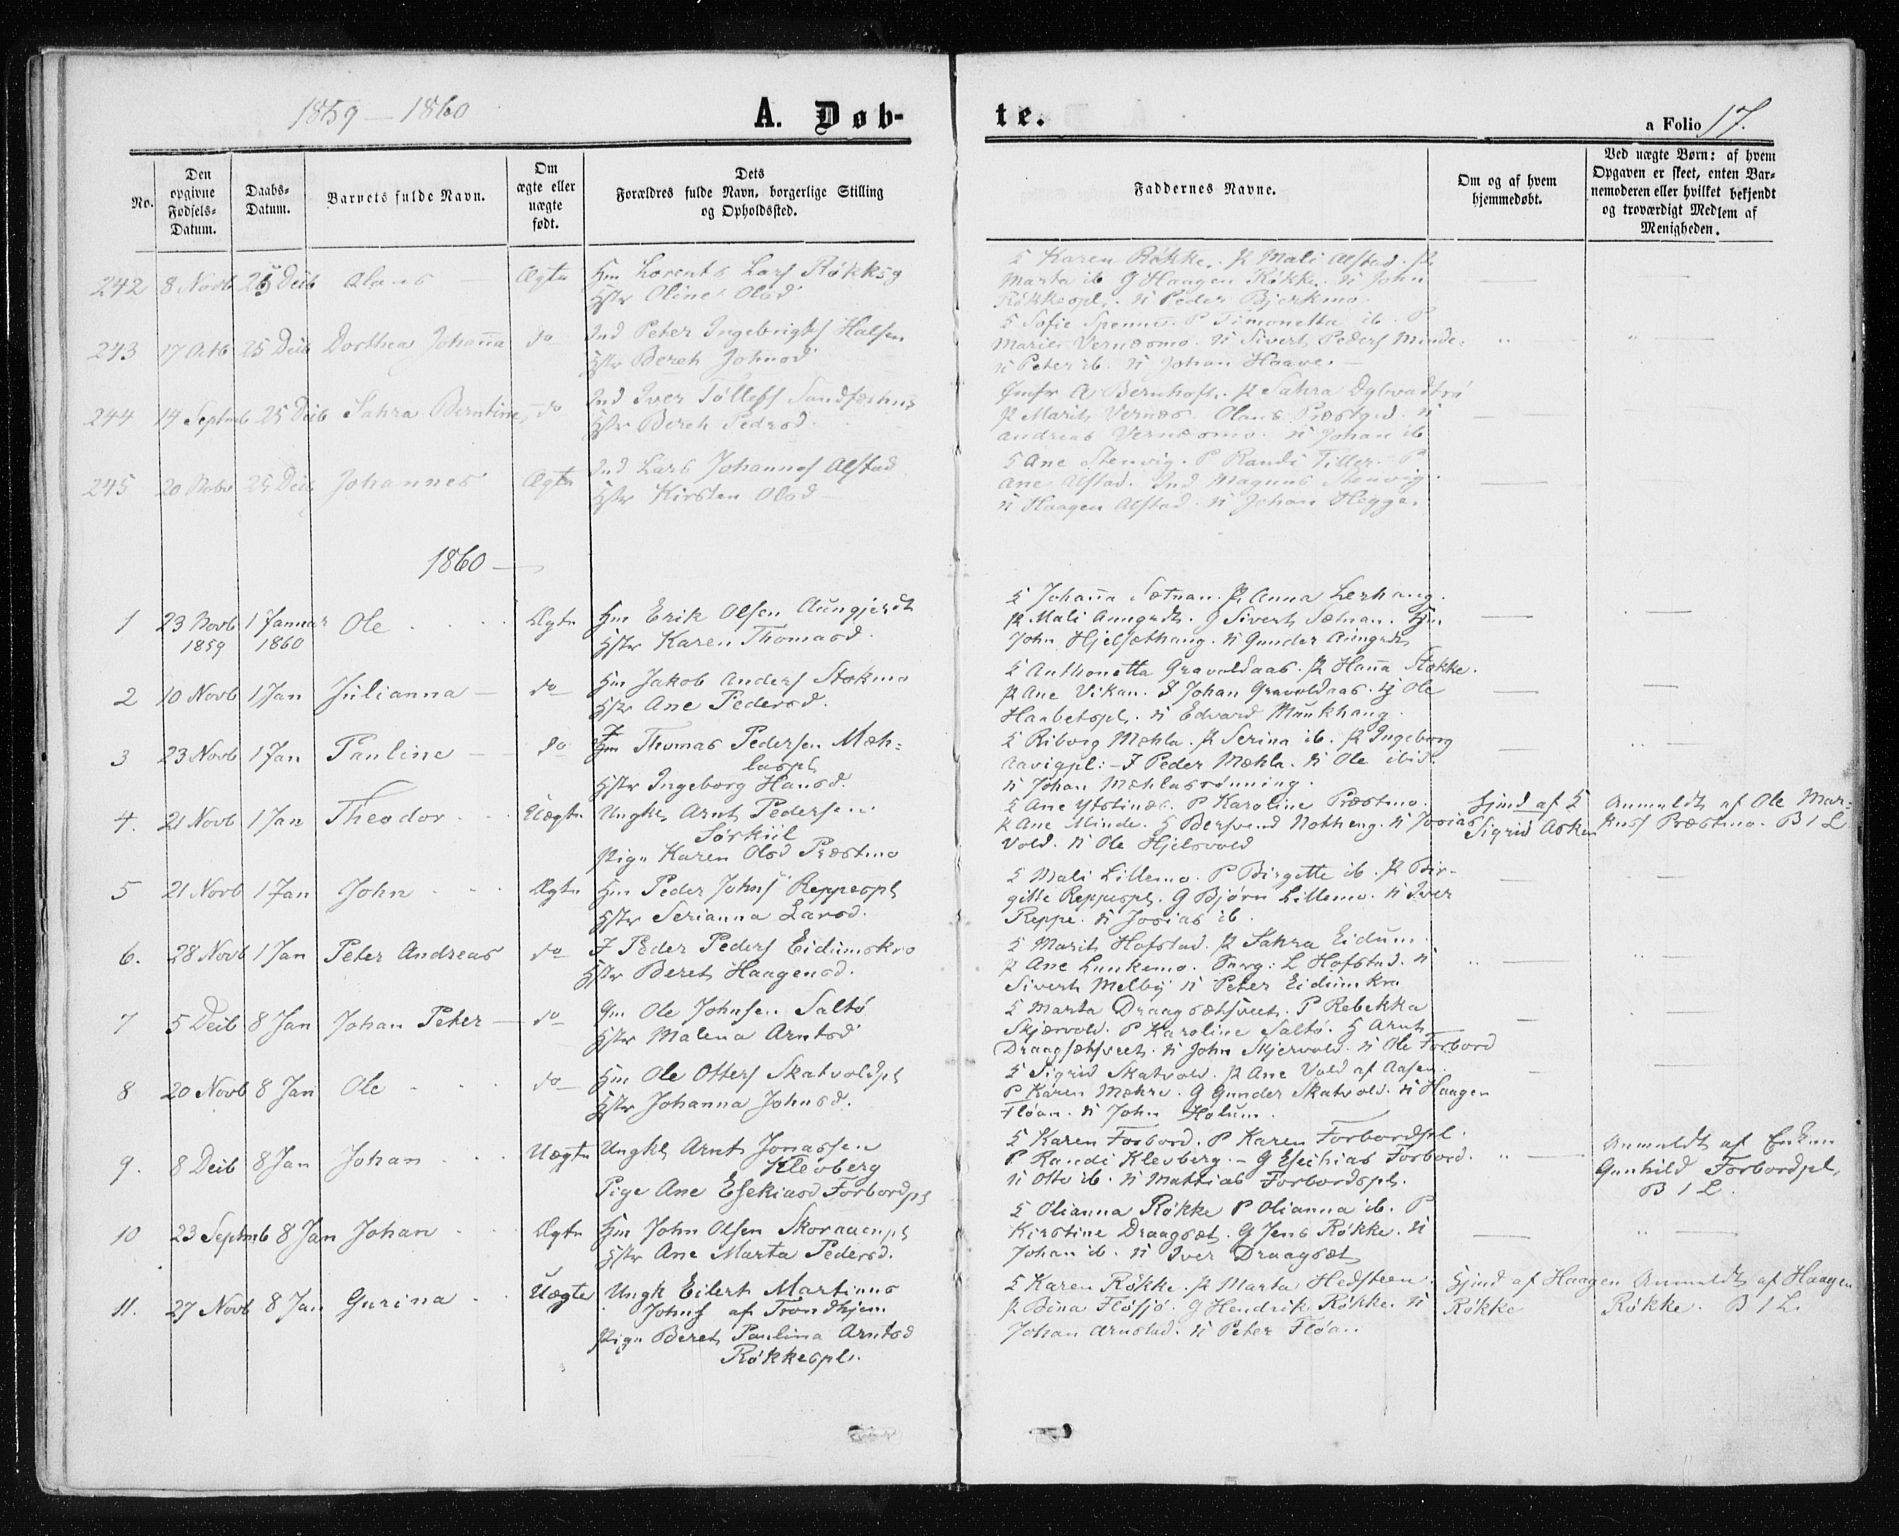 1859 – 1860
A. Døb-
te.
a Folio 17.
No.
Den opgivne Fødsels-Datum.
Daabs-Datum.
Barnets fulde Navn.
Om ægte eller uægte født.
Dets Forældres fulde Navn, borgerlige Stilling og Opholdssted.
Faddernes Navne.
Om og af hvem hjemmedøbt.
Ved uægte Børn: af hvem Opgaven er skeet, enten Barnemoderen eller hvilket bekjendt og troværdigt Medlem af Menigheden.
242 8 Novb 26 Decb Olaus Ægte Hm Lorents Lars Røkkeg
Hstr Oline Olsd
K Karen Røkke. P Mali Alstad. P
Marta ib G Haagen Røkke. N John
Røkkespl. N Peder Bjerkmo.
243 17 Octb 25 Decb Dorthea Johanna do Ind Peter Ingebrigts Halsen
Hstr Beret Johnsd
K Sofie Spenne. P Timonetta ib. P
Marie Vernesmo. N Sivert Peders Minde.
N Peter ib. N Johan Haave.
244 14 Septmb 25 Decb Sahra Berntine do Ind Iver Tøllefs Sandfærhus
Hstr Beret Pedrsd.
Jmfr A Bernhoft. P Sahra Dybvadbrø
P Marit Vernes. Olaus Præstgrd. N
Andreas Vernesmo. N Johan ib
245 20 Novb 25 Decb Johannes Ægte Ind Lars Johannes Alstad
Hstr Kirsten Olsd
K Ane Stenvig. P Randi Tiller. P
Ane Alstad. Ind Magnus Stenvig.
N Haagen Alstad. N Johan Hegge.
1860
1 23 Novb 1 Januar Ole Ægte Hm Erik Olsen Aungjerdt
1859 1860 Hstr Karen Thomasd.
K Johanna Sætnan. P Anna Lerhaug.
P Mali Aungrdt. G Sivert Sætnan. Hm
John Hjelsethaug. N Gunder Aungrdt
2 10 Novb 1 Jan Julianna do Hm Jakob Anders Stokmo
Hstr Ane Pedersd.
K Anthonetta Gravoldaas. P Hanna Stokke.
P Ane Vikan. I Johan Gravoldaas. Hj Ole
Haabetspl. N Edvard Munkhaug.
3 23 Novb 1 Jan Pauline do Thomas Pedersen Mæh-
laspl
Hstr Ingeborg Hansd.
K Riborg Mæhla. P Serina ib. P Ingeborg
Aavigpl. I Peder Mæhla. N Ole ibid.
N Johan Mæhlasrønning.
4. 21 Novb 1 Jan Theodor Uægte Ungkl Arnt Pedersen
Sørkiil
Pige Karen Olsd Præstmo
K Ane Ytstines. P Karoline Præstmo.
P Ane Minde. G Bersvend Notheng. N Josias
Vold. N Ole Hjelsvold
Hjmd af K
Sigrid Asken
Anmeldt af Ole Mar-
kuss Præstmo. B 1 L
5 21 Novb 1 Jan John Ægte Hm Peder Johns Reppespl
Hstr Serianna Larsd.
K Mali Lillemo. P Birgette ib. P Bir-
gitte Reppespl. G Bjørn Lillemo. N Iver
Reppe. N Josias ib.
6. 28 Novb 1 Jan Peter Andreas do I Peder Peders Eidumskro
Hstr Beret Haagensd.
K Marit Hofstad. P Sahra Eidum.
P Ane Lunkemo. L Hofstad. N
Sivert Melby N Peter Eidumkro
7 5 Decb 8 Jan Johan Peter do Gm Ole Johnsen Saltø
Hstr Malena Arntsd
K Marta Draagsethsveet. P Rebekka
Skjærvold. P Karoline Saltø. G Arnt
Draagsethsveet. N John Skjervold. N Ole Forbord
8 20 Novb 8 Jan Ole do Hm Ole Otters Skatvoldpl
Hstr Johanna Johnsd.
K Sigrid Skatvold. P Ane Vold af Aasen.
P Karen Mæhre. G Gunder Skatvold. N Haagen
Fløan. N John Holum.
9. 8 Decb 8 Jan Johan Uægte Ungkl Arnt Jonassen
Klevberg
Pige Ane Esekiasd Forbordpl
K Karen Forbord. P Karen Forbordspl.
P Randi Klevberg. G Esechias Forbord.
N Otto ib. N Mathias Forbordspl.
Anmeldt af Enken
Gunhild Forbordpl,
B 1 L.
10 23 Septmb 8 Jan Johan Ægte Hm John Olsen Skoraaenpl
Hstr Ane Marta Pedersd.
K Olianna Røkke P Olianna ib. P
Kirstine Draagset. G Jens Røkke. N
Johan ib. N Iver Draagset
11. 27 Novb 8 Jan Gurina Uægte Ungk Eilert Martinus
Johns af Trondhjem
Pige Beret Paulina Arntsd
Røkkespl.
K Karen Røkke. P Marta Hedsteen.
P Bina Fløsjø. G Hendrik Røkke. N
Johan Arnstad. N Peter Fløan.
Hjmd af Haagen
Røkke
Anmeldt af Haagen
Røkke. B 1 L.